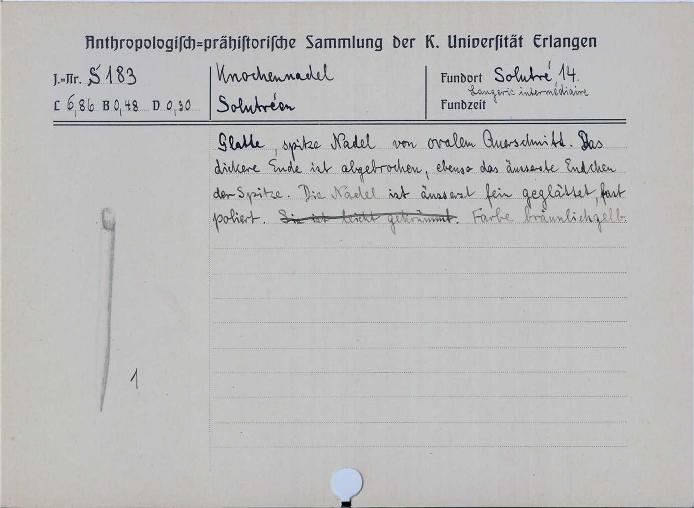 Anthropologisch=prähistorische Sammlung der K. Universität Erlangen
J.=Nr. S 183
L 6,86 B 0,48 D 0,30
Knochennadel
Solutréen
Fundort Solutré 14.
Laugerie intermédiaire
Fundzeit
Glatte, spitze Nadel von ovalem Querschnitt. Das
dickere Ende ist abgebrochen, ebenso das äusserste Endchen
der Spitze. Die Nadel ist äusserst fein geglättet, fast
poliert. Sie ist leicht gekrümmt. Farbe bräunlichgelb.
1